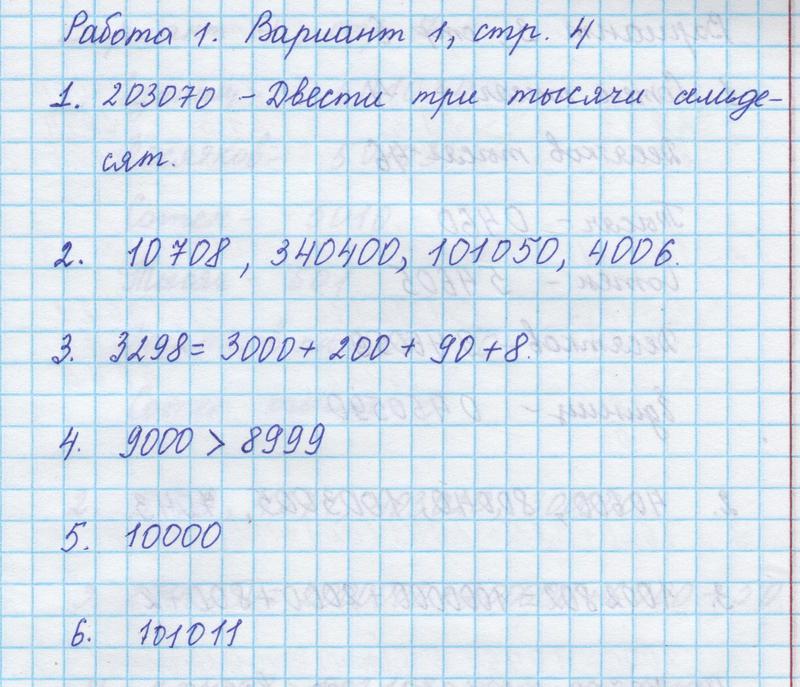 Работа 1. Вариант 1, стр. 4
1. 203070 - Двести три тысячи семьде-
сят.
2. 10708, 340400, 101050, 4006.
3. 3298 = 3000 + 200 + 90 + 8.
4. 9000 > 8999
5. 10000
6. 101011